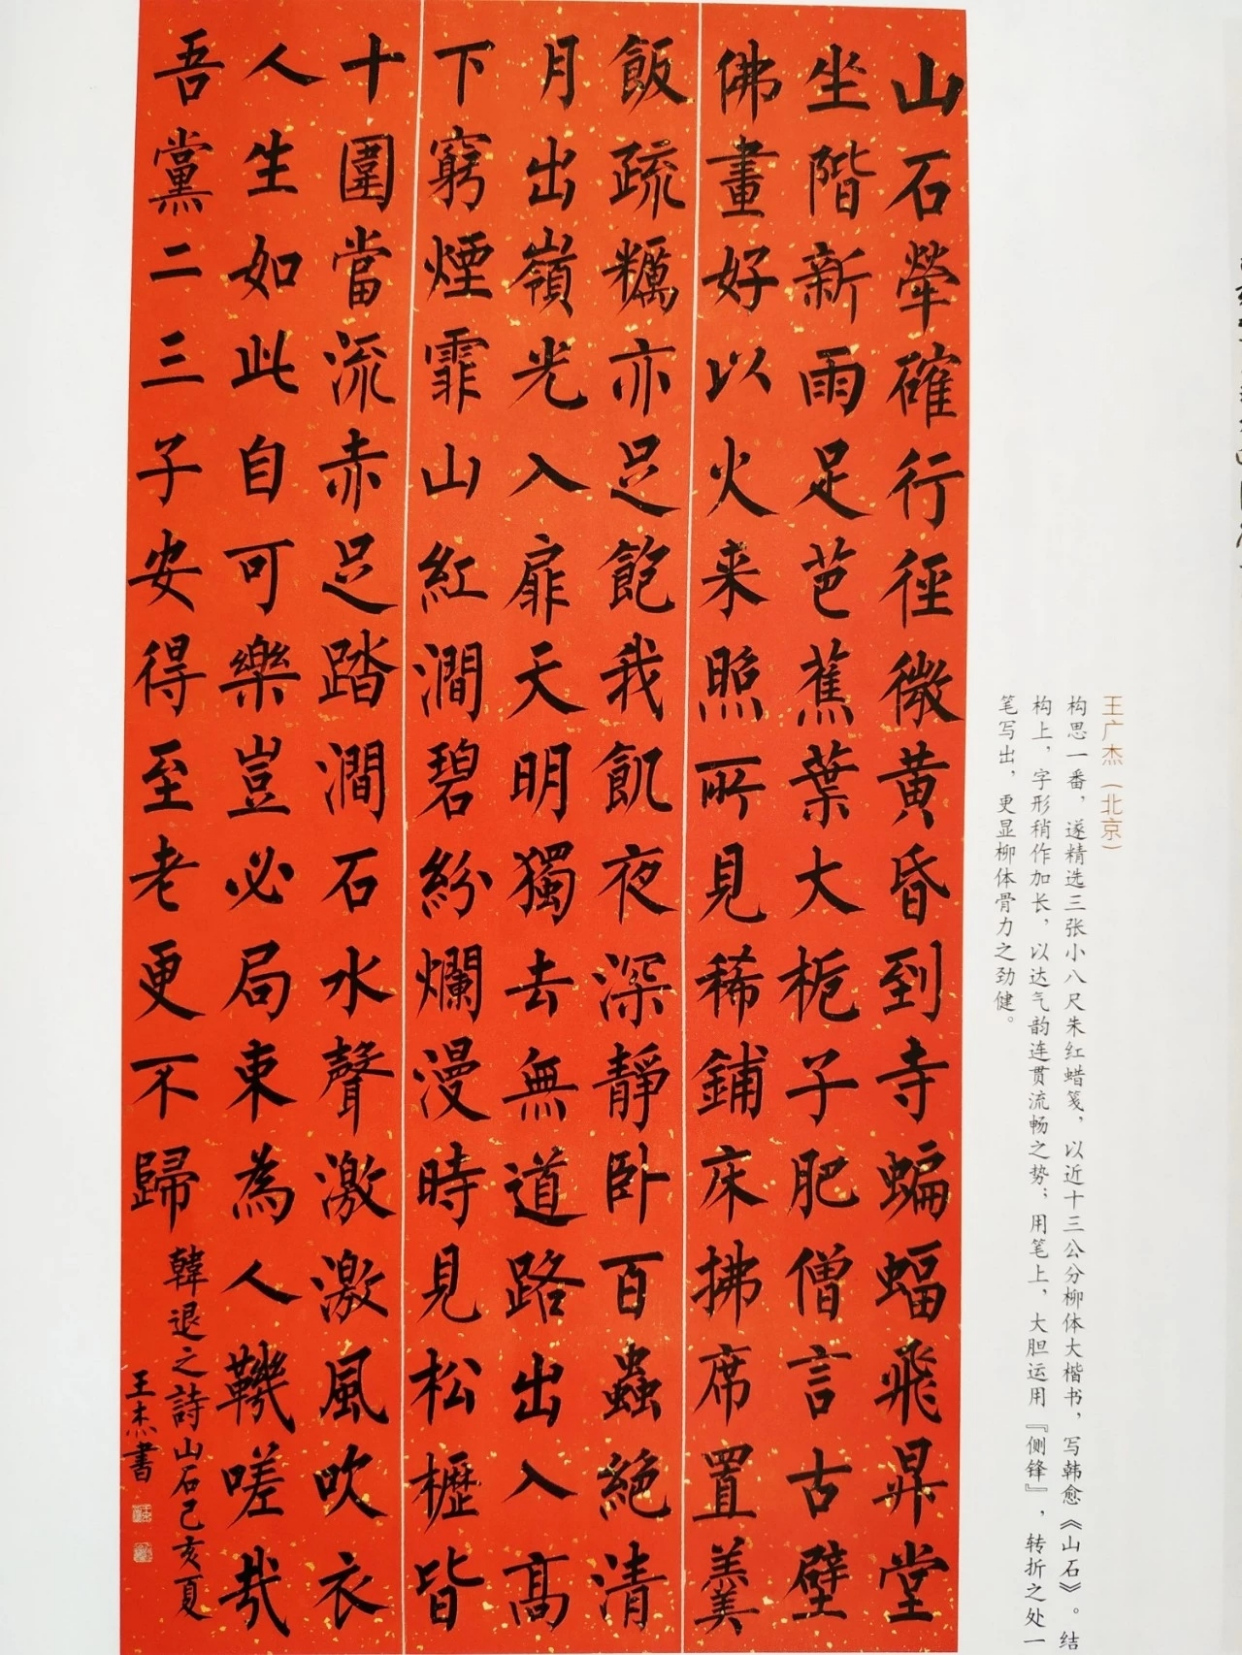 王广杰（北京）
构思一番，遂精选三张小八尺朱红蜡笺，以近十三公分柳体大楷书，写韩愈《山石》。结
构上，字形稍作加长，以达气韵连贯流畅之势；用笔上，大胆运用『侧锋』，转折之处一
笔写出，更显柳体骨力之劲健。
山石犖確行徑微黄昏到寺蝙蝠飛昇堂
坐階新雨足芭蕉葉大栀子肥僧言古壁
佛畫好以火来照所見稀鋪床拂席置羹
飯疏糲亦足飽我飢夜深靜卧百蟲絕清
月出嶺光入扉天明獨去無道路出入高
下窮煙霏山紅澗碧紛爛漫時見松櫪皆
十圍當流赤足踏澗石水聲激激風吹衣
人生如此自可樂豈必局束為人鞿嗟哉
吾黨二三子安得至老更不歸
韓退之詩山石己亥夏
王杰書